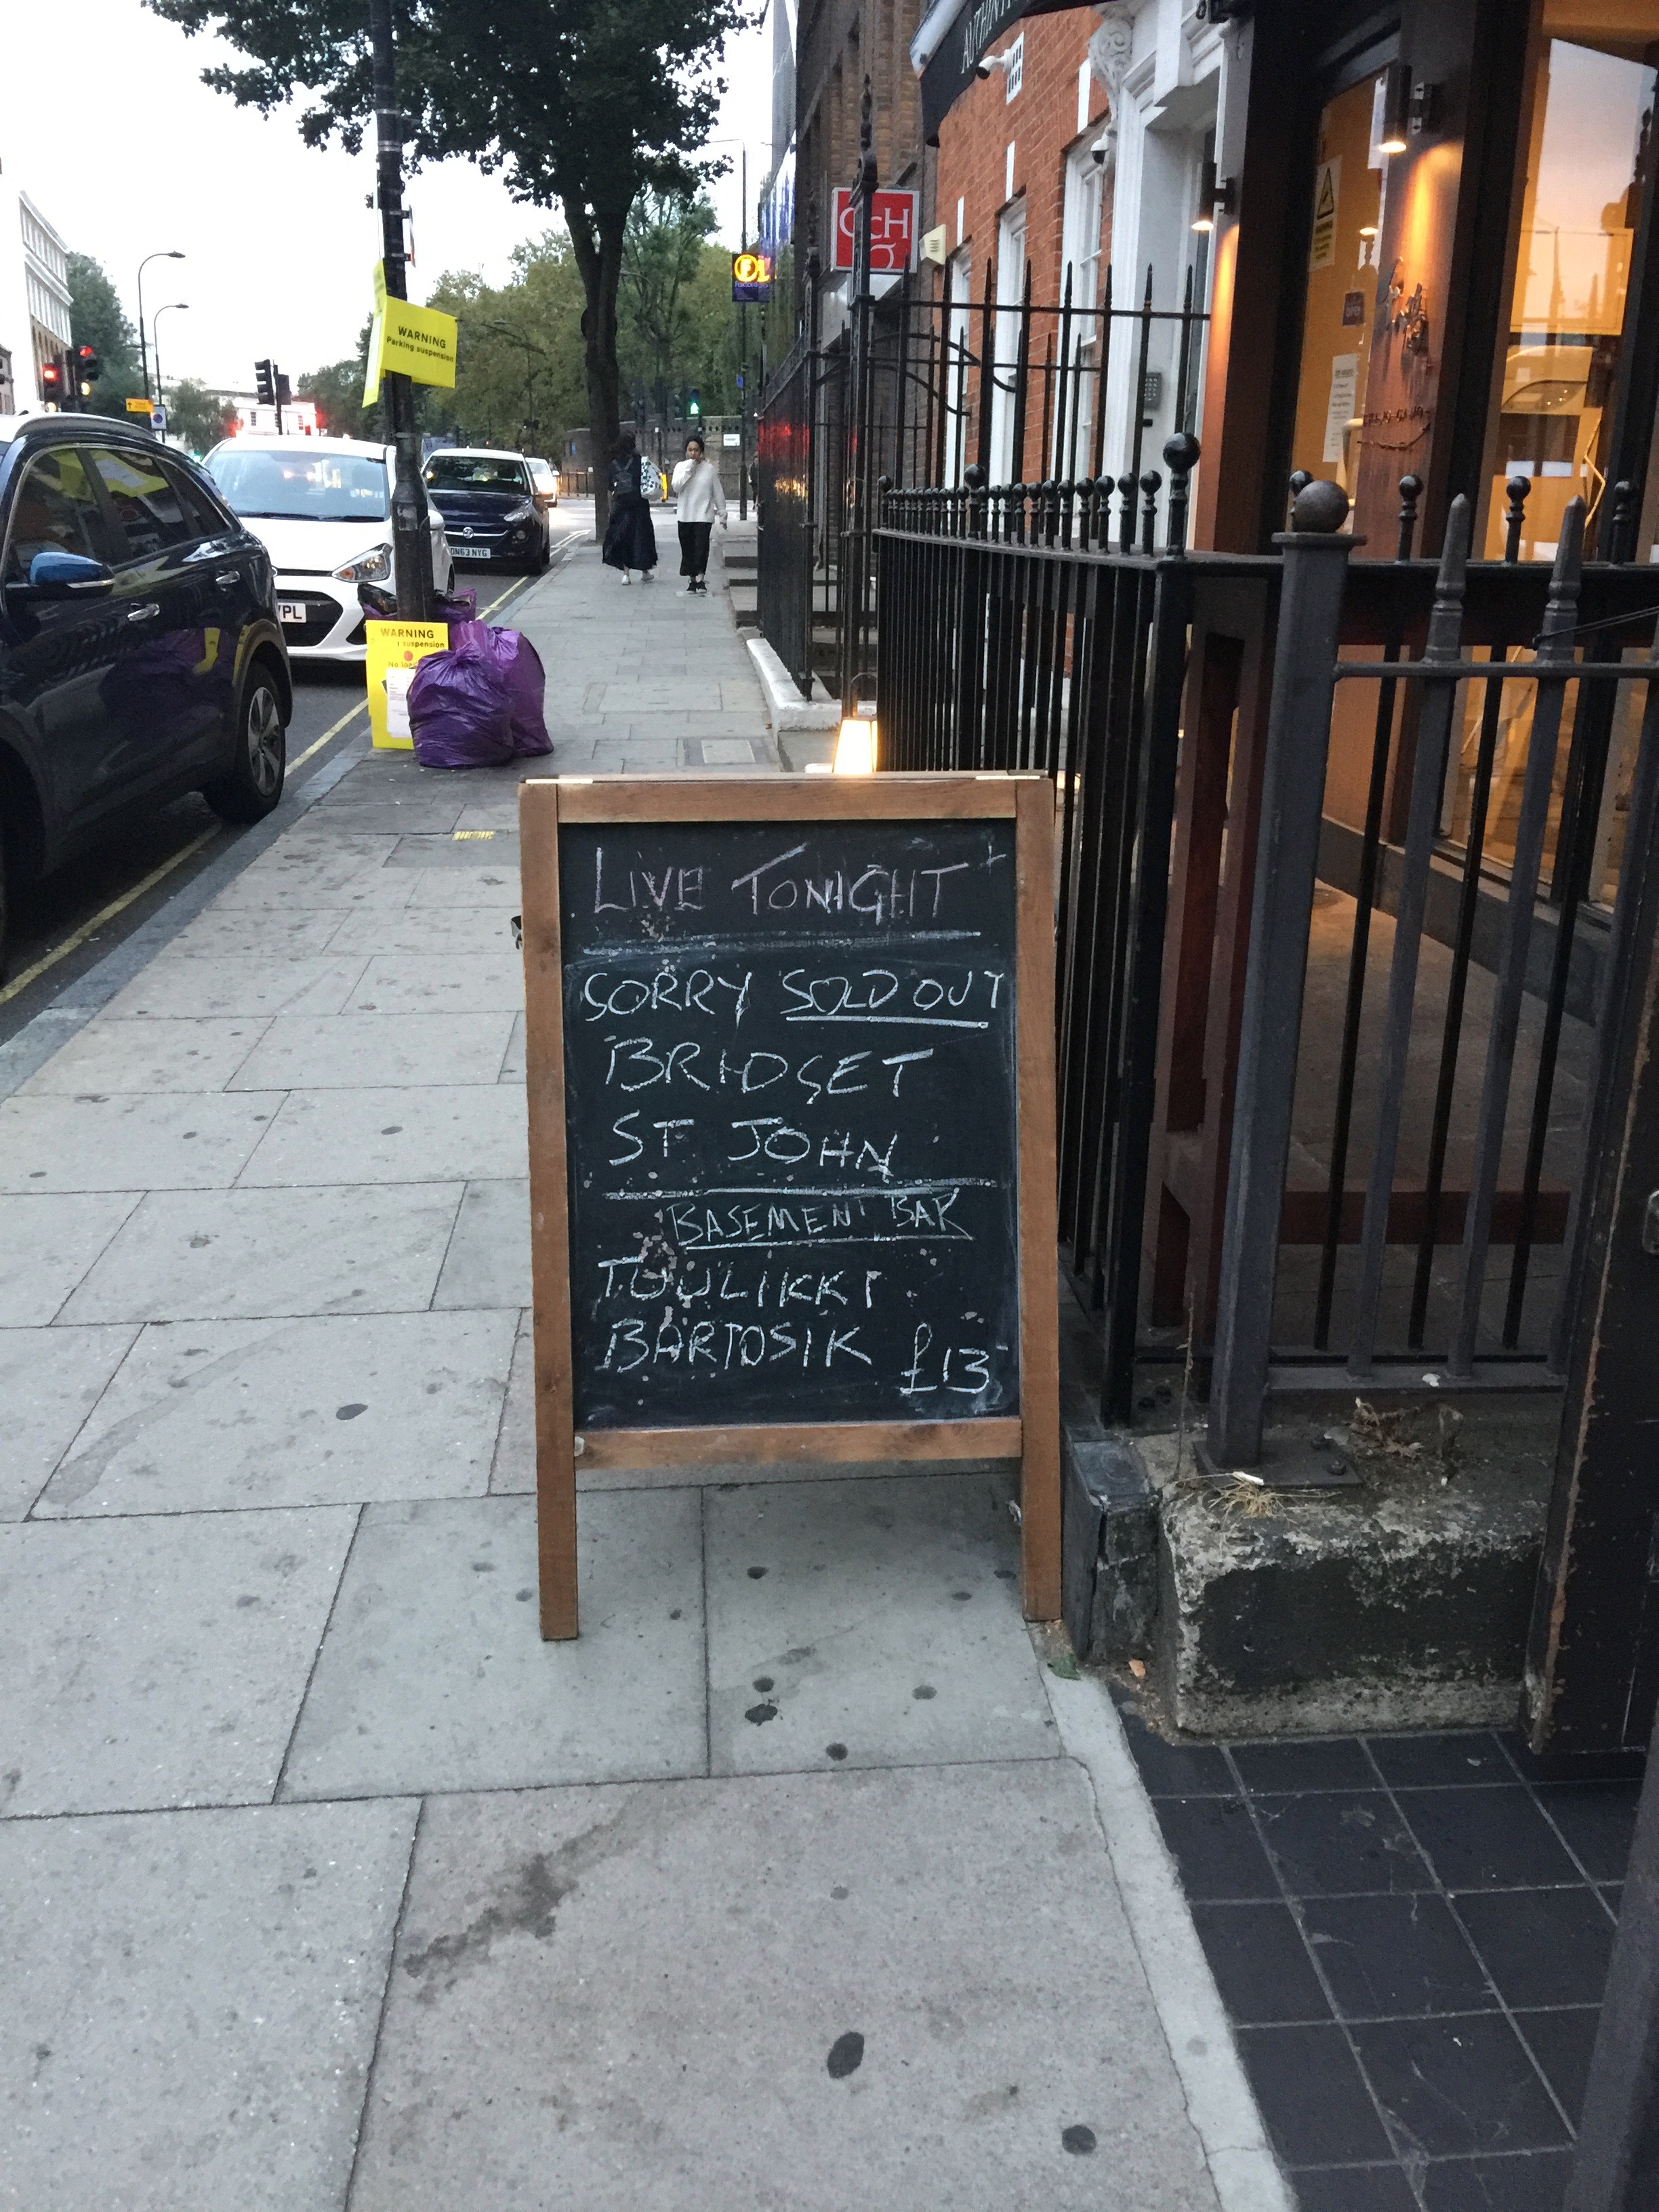 WARNING
Parking suspension
WARNING
suspension
DN63 NYG
LIVE TONIGHT
SORRY SOLD OUT
BRIDGET
ST JOHN
BASEMENT BAR
TUULIKKI
BARTOSIK £13